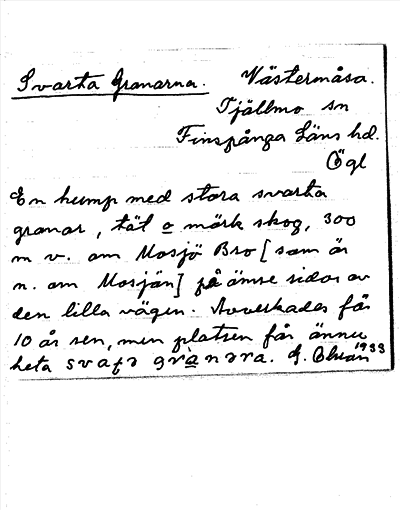 Svarta Granarna. Västermåsa.
Tjällmo sn
Finspånga Läns hd.
Ögl
En hump med stora svarta
granar, tät o mörk skog, 300
m v. om Mosjö Bro [som är
n. om Mosjön] på ömse sidor av
den lilla vägen. Avverkades för
10 år sen, men platsen får ännu
heta svaʈa grànara. G. 1933